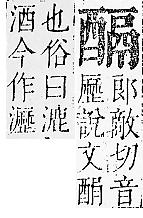 郎敵切音
歷說文
也俗曰漉
酒今作瀝